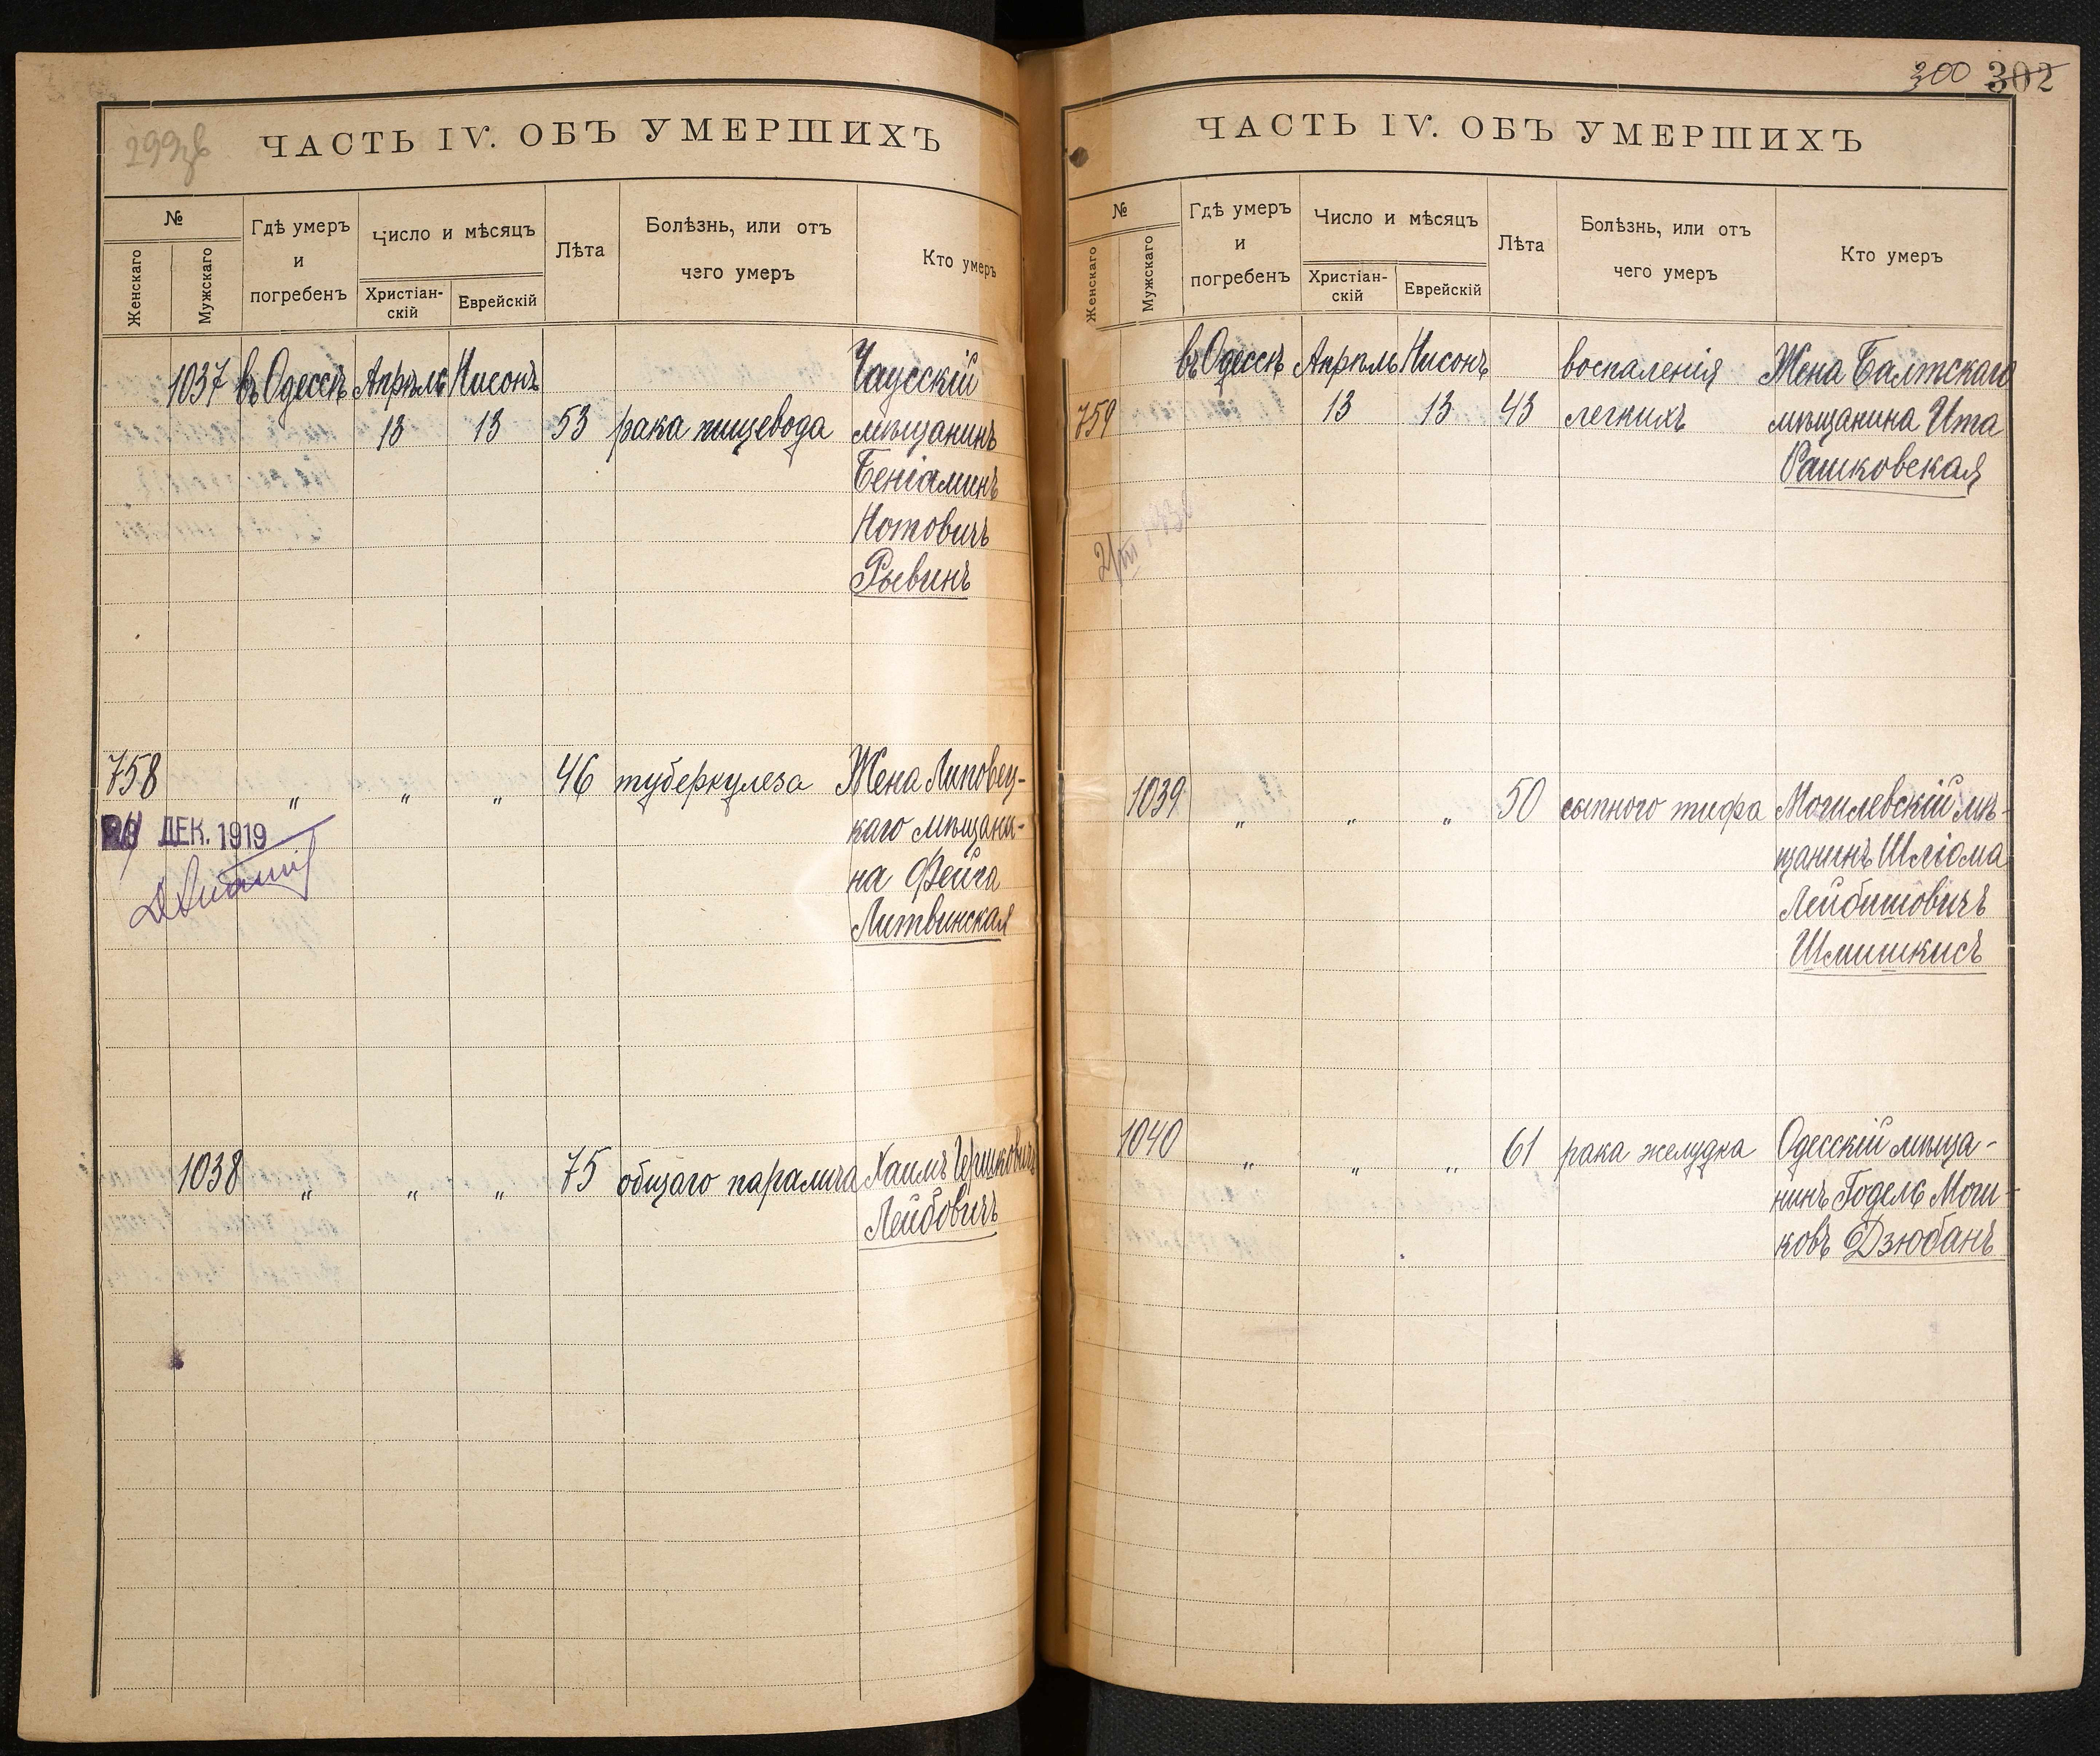 299об
ЧАСТЬ IV. ОБЪ УМЕРШИХЪ
№
Женскаго
Мужскаго
Гдѣ умеръ
и
погребенъ
Число и мѣсяцъ
Христіан-
скій
Еврейскій
Лѣта
Болѣзнь, или отъ
чего умеръ
Кто умеръ
1037 въ Одессѣ Апрѣль Нисонъ Чаусскій
13 13 53 рака пищевода мѣщанинъ
Беніаминъ
Нотовичъ
Рывинъ
758 " " " 46 туберкулеза Жена Липовец-
каго мѣщани-
на Фейга
Литвинская
ДЕК. 1919
1038 " " " 75 общаго паралича Хаимъ Гершковичъ
Лейбовичъ
300 302
ЧАСТЬ IV. ОБЪ УМЕРШИХЪ
№
Женскаго
Мужскаго
Гдѣ умеръ
и
погребенъ
Число и мѣсяцъ
Христіан-
скій
Еврейскій
Лѣта
Болѣзнь, или отъ
чего умеръ
Кто умеръ
въ Одессѣ Апрѣль Нисонъ воспаленія Жена Балтскаго
759 13 13 43 легкихъ мѣщанина Ита
Рашковская
1039 " " " 50 сыпного тифа Могилевскій мѣ-
щанинъ Шліома
Лейбишовичъ
Шмишкисъ
1040 " " " 61 рака желудка Одесскій мѣща-
нинъ Годель Мош-
ковъ Дзюбанъ